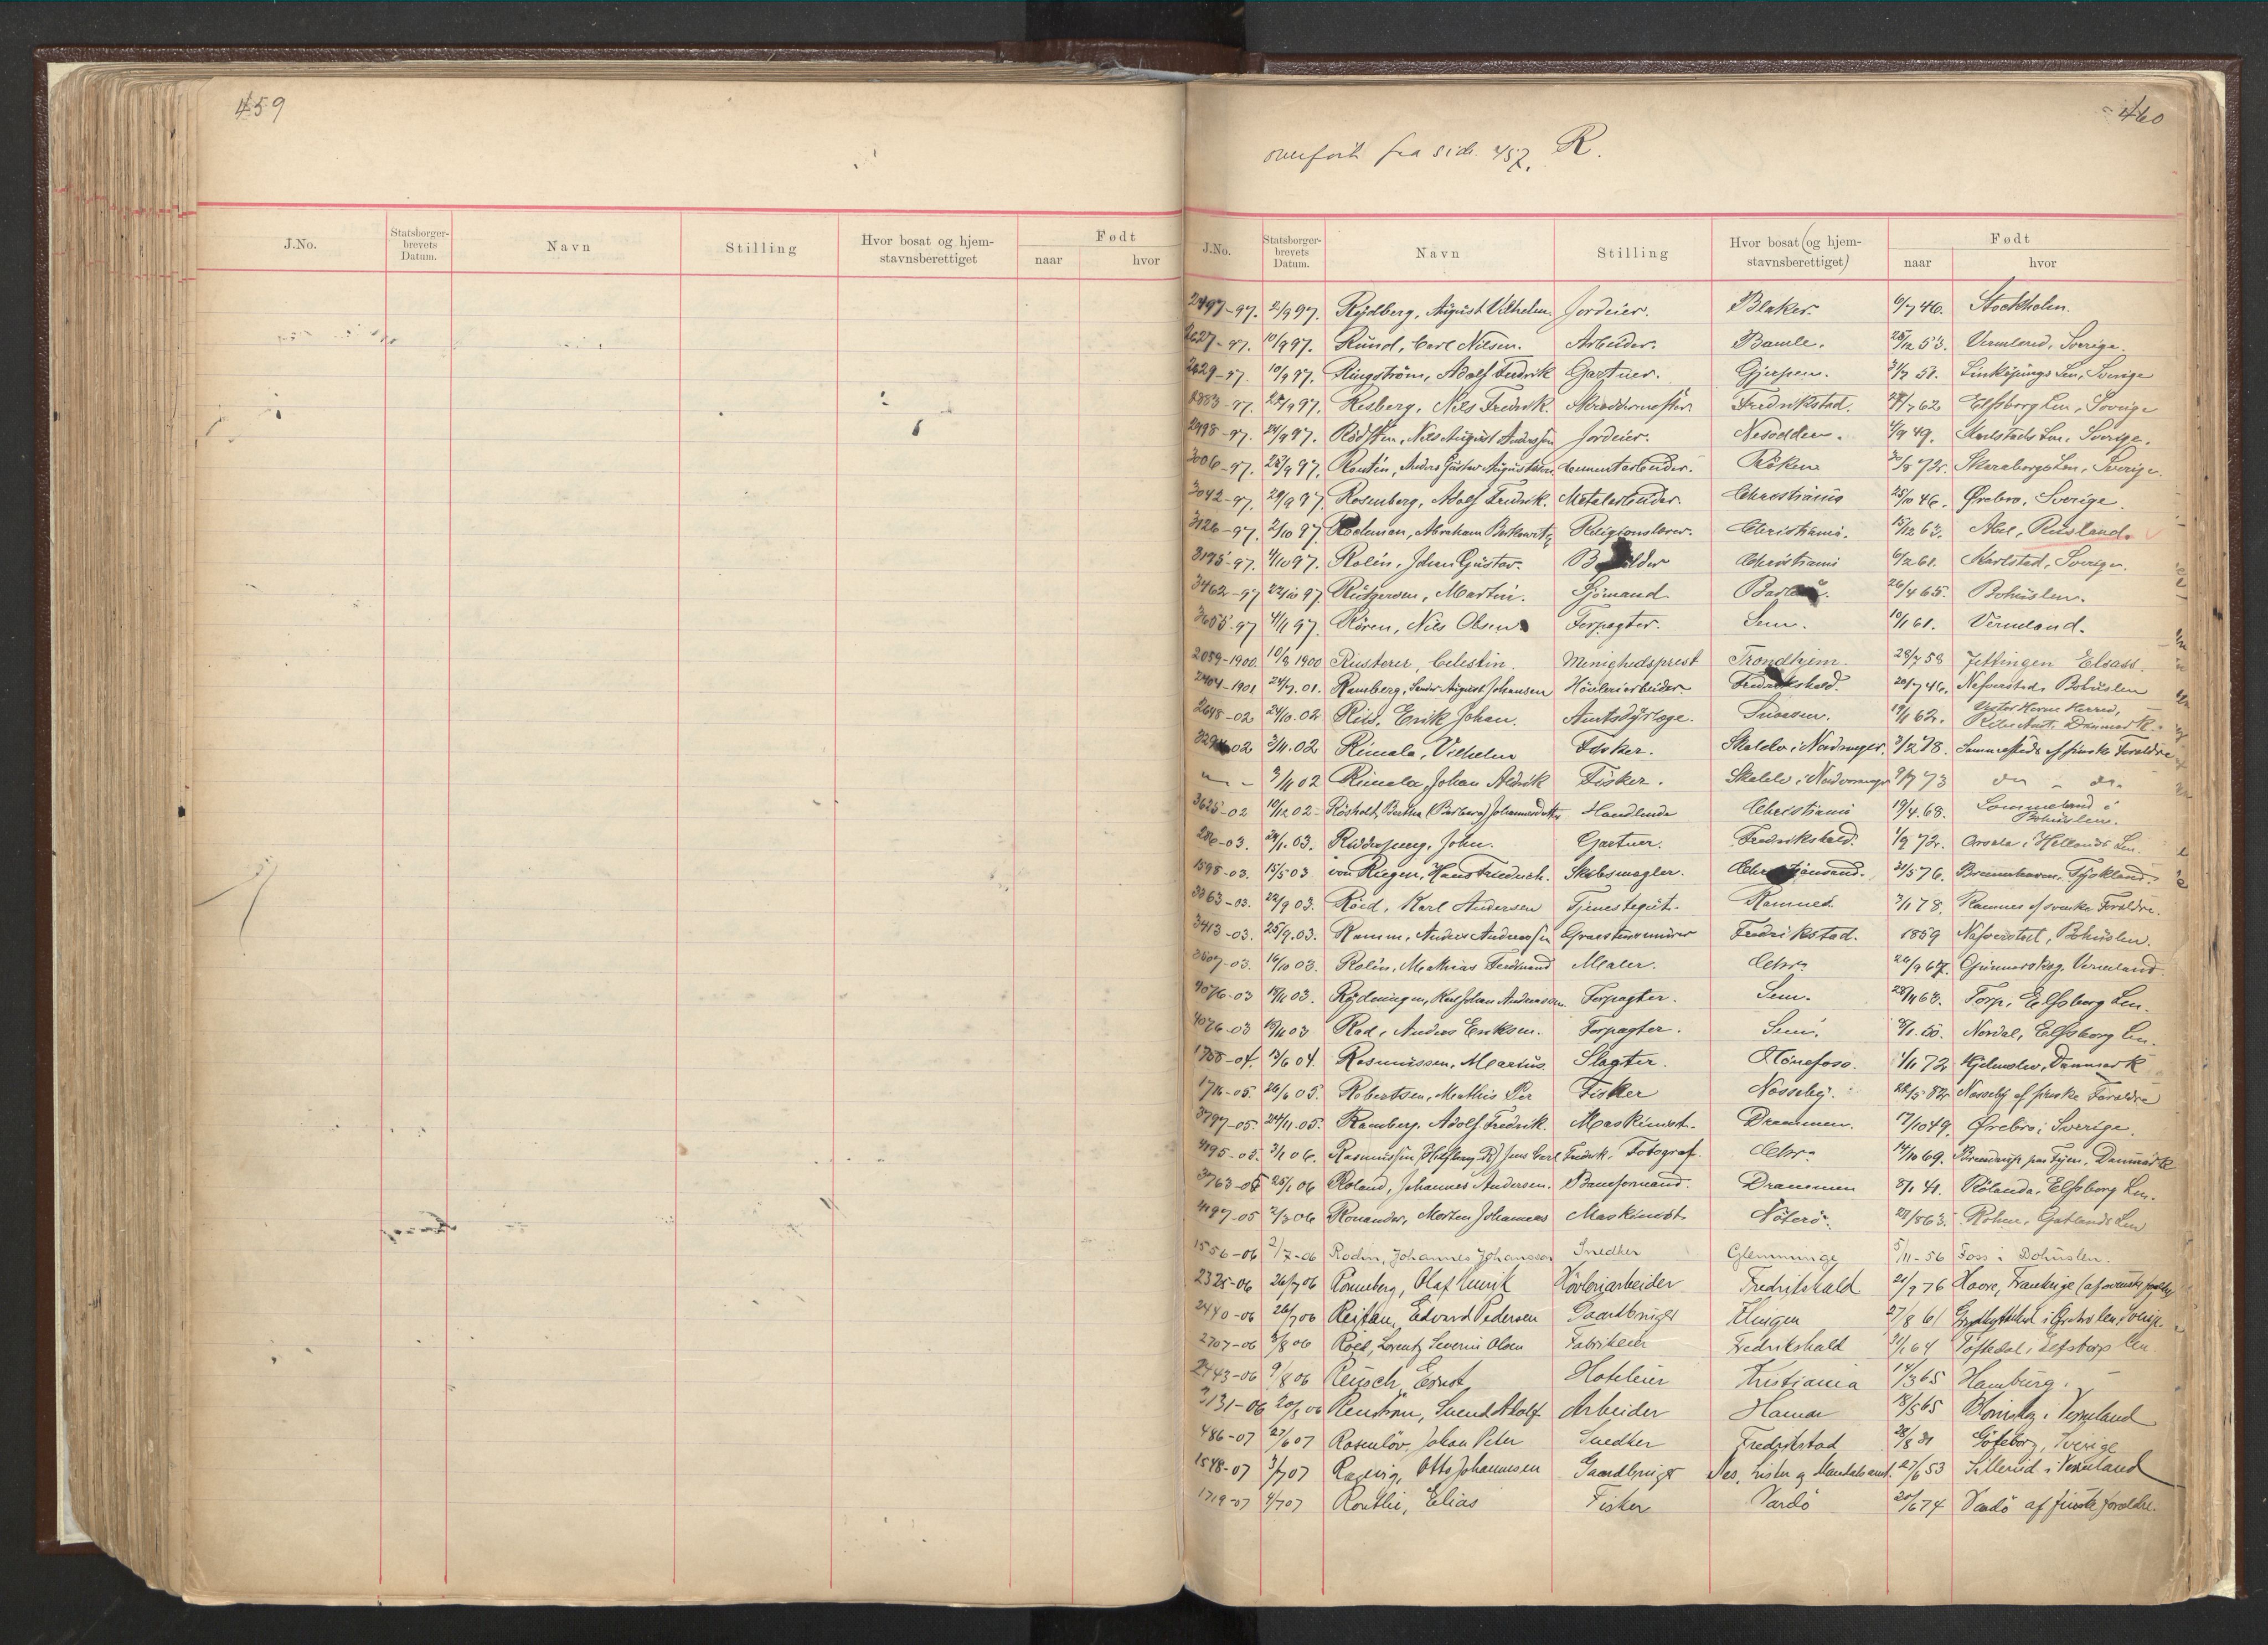 459
J.No.
Statsborger-
brevets
Datum.
Navn
Stilling
Hvor bosat og hjem-
stavnsberettiget
Født
naar
hvor
460
overført fra side 457. R.
J.No.
Statsborger-
brevets
Datum.
Navn
Stilling
Hvor bosat (og hjem-
stavnsberettiget)
Født
naar
hvor
2497-97. 2/9 97. Rydberg, August Vilhelm. Jordeier. Blaker. 6/7 46. Stockholm.
2627-97. 10/9 97. Rund, Carl Nilsen. Arbeider. Bamle. 28/12 53. Vermland, Sverige.
2629-97. 10/9 97. Ringström, Adolf Fredrik Gartner. Gjerpen. Linköpings Len, Sverige
2883-97. Resberg, Nils Fredrik. Skræddermester. Fredrikstad. Elfsborg Len, Sverige
2998-97. 24/9 97. Nils August Anderssen Jordeier. Nesodden. 4/9 49. Karlstads Len, Sverige.
3006-97. 25/9 97. Anders Gustav Cementarbeider. Röken Skaraborgs Len, Sverige.
3042-97. 29/9 97. Rosenberg, Adolf Fredrik. Metalarbeider. Christiania 25/10 46. Ørebro, Sverige.
3126-97. 2/10 97. Abraham Religionslærer. Christiania. 15/12 63. Rusland.
3195-97. 4/10 97. Rolin, Johan Gustav. Christiania 6/2 61. Karlstad, Sverige.
3462-97 22/10 97. Martin. Sjömand. 26/4 65. Bohuslen.
3655-97 4/11 97. Rören, Nils Olsen Forpagter. Sem. 10/1 61. Vermland.
2059-1900. 10/8 1900 Rusterer, Celestin. Menighedsprest Trondhjem. 28/7 58 Jettingen Elsass.
2404-1901 24/7. 01. Ramberg, August Johansen Hövleriarbeider. Fredrikshald. 20/7 46. Nafverstad, Bohuslen
2648-02 24/10. 02 Riis, Erik Johan. Amtsdyrlæge. Snaasen. 19/1 62. Vester Horne Herred,
Ribe Amt, Danmark.
02 3/11. 02 Rimala, Vilhelm Fisker. 3/2 78. Sammesteds af finske Forældre
" - 3/11 02 Rimala, Johan Fisker. 9/7 73 do - do.
3625-02 10/12 02 Rösholt, Bertha (Barbara) Johannesdatter Handlende Christiania 19/4. 68. Sommeland i
Bohuslen.
286-03. 24/1. 03. John. Gartner. Fredrikshald. 1/9 72. Hallands Len.
1598-03. 15/5 03 von Riegen, Hans Friedrich. Skibsmægler. Christiansand. 31/5 76. Bremerhaven, Tyskland.
3363-03. 22/9 03. Röed, Karl Andersen Tjenestegut. Ramnes 3/1 78. Ramnes af svenske Forældre.
3413-03. 25/9. 03. Ramm, Anders Andreassen Fredrikstad. 1859 Nafverstad, Bohuslen.
3607-03. 16/10 03. Rolin, Mathias Ferdinand Maler. Chra 26/9 67. Gunnarskog. Vermland.
4076-03 18/11 03. Karl Johan Andersson. Forpagter. Sem. 28/11 63. Torp, Elfsborg Len.
4076-03 18/11 03 Rød, Anders Eriksen. Forpagter. Sem. Nordal, Elfsborg Len.
1755-04. 13/6 04. Rasmussen, Marius. Slagter. Hönefoss. 1/11 72 Hjelmslev, Danmark
1716-05. 26/6 05. Robertsen, Mathis Per Fisker Nesseby. Nesseby af finske Forældre
3797-05. 24/11. 05. Ramberg, Adolf Fredrik. Maskinist. Drammen. 17/10 49. Ørebro i Sverige.
4195-05. 3/1 06. Rasmussen Jens Carl Fredrik. Fotograf. Chra 14/10 69. Brenderup paa Fyen. Danmark
3763-05 25/1 06 Roland, Johannes Andersen. Baneformand. Drammen 8/1 41. Rölanda, Elfsborg Len.
4197-05 2/3 06 Ronander, Morten Johannes Maskinist Nöterö. Gotlands Len
1556-06 2/7-06 Rodin, Johannes Johanssen Snedker Glemminge 5/11-56 Foss i Bohuslen.
2325-06 26/7 06 Rönneberg, Olaf Henrik Hövleriarbeider Fredrikshald 21/7 76 Havre, Frankrige (af svenske forældre)
2440-06 26/7 06 Reistan, Edvard Pedersen Gaardbruger Elingen 27/8 61 Sverige.
2707-06 8/8 06 Röed, Lorentz Severin Olsen Fabrikeier Fredrikshald 31/1 64 Töftedal i Elfsborg len
2743-06 9/8 06 Reusch, Ernst Hoteleier Kristiania 14/3 65 Hamburg.
3131-06 Renström, Svend Adolf Arbeider Hamar 18/5 65 Vermland
486-07 27/6 07 Rosenlöv, Johan Peter Snedker Fredrikstad 28/8 31 Göteborg, Sverige
1548-07 3/7 07 Ragvig, Otto Johannesen Gaardbruger Nes, Lister og Mandals amt. 27/6 53 Sillerud i Vermland
1719-07 4/7 07 Routhi, Elias Fisker Vardö 20/6 74 Vadsö af finske forældre.